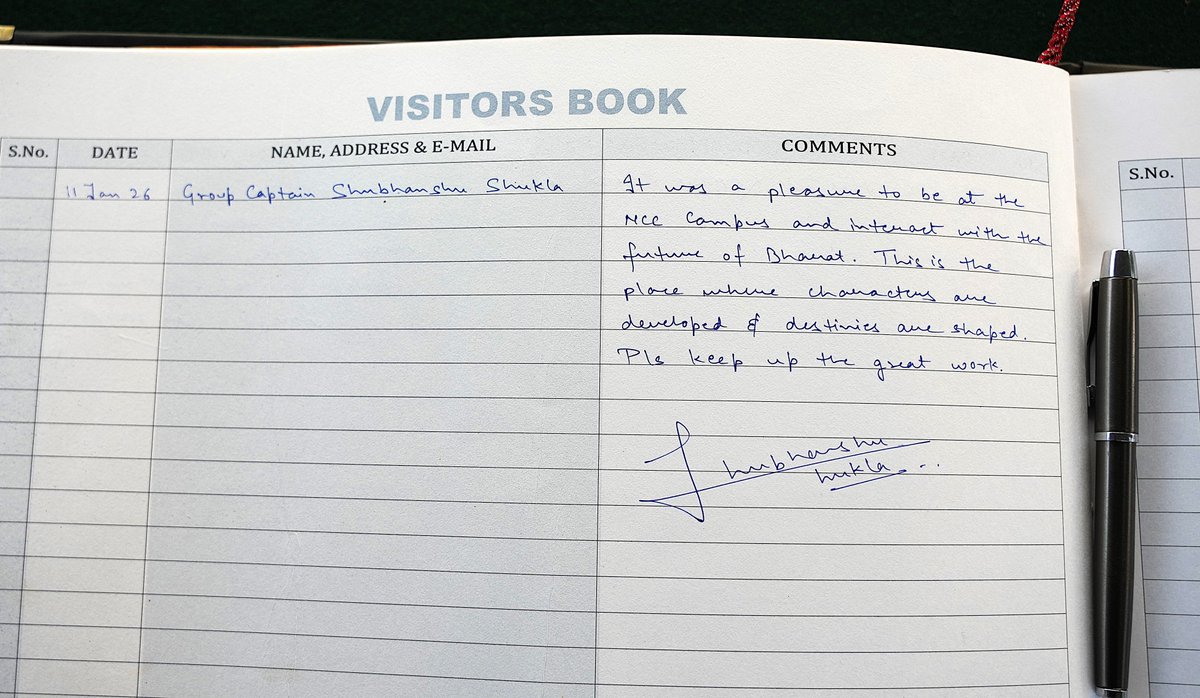 VISITORS BOOK
S.No. DATE NAME, ADDRESS & E-MAIL COMMENTS S.No.
11 Jan 26 Group Captain Shubhanshu Shukla It was a pleasure to be at the
NCC Campus and interact with the
future of Bharat. This is the
place where characters are
developed & destinies are shaped.
Pls keep up the great work.
Shubhanshu
Shukla